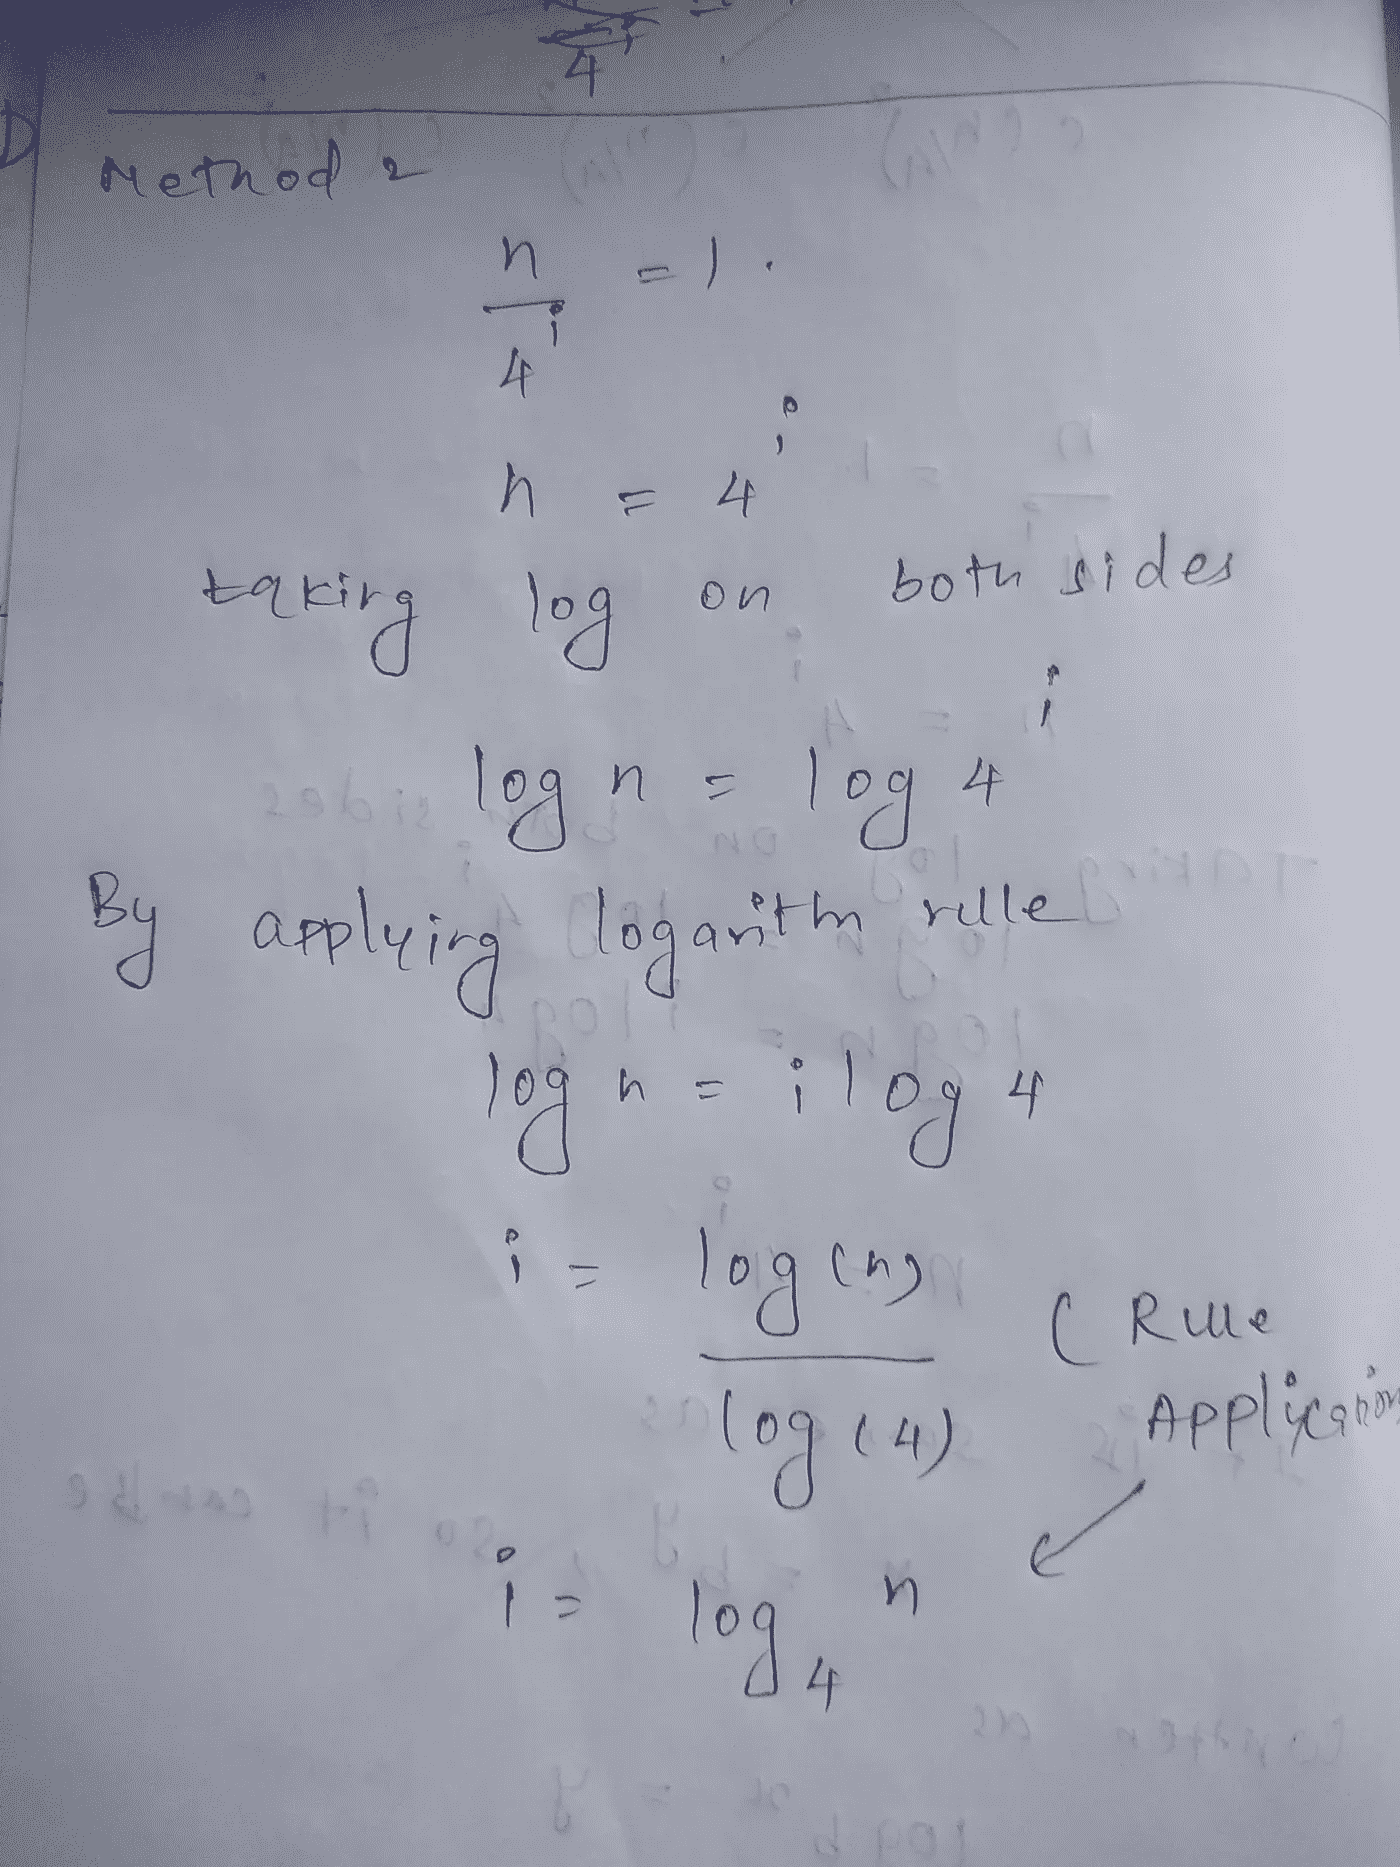 4
Method 2
n/4^i = 1.
n = 4^i
taking log on both sides
log n = log 4^i
By applying logarithm rule
log n = i log 4
i = log(n)/log(4) ( Rule Application
i = log_4 n